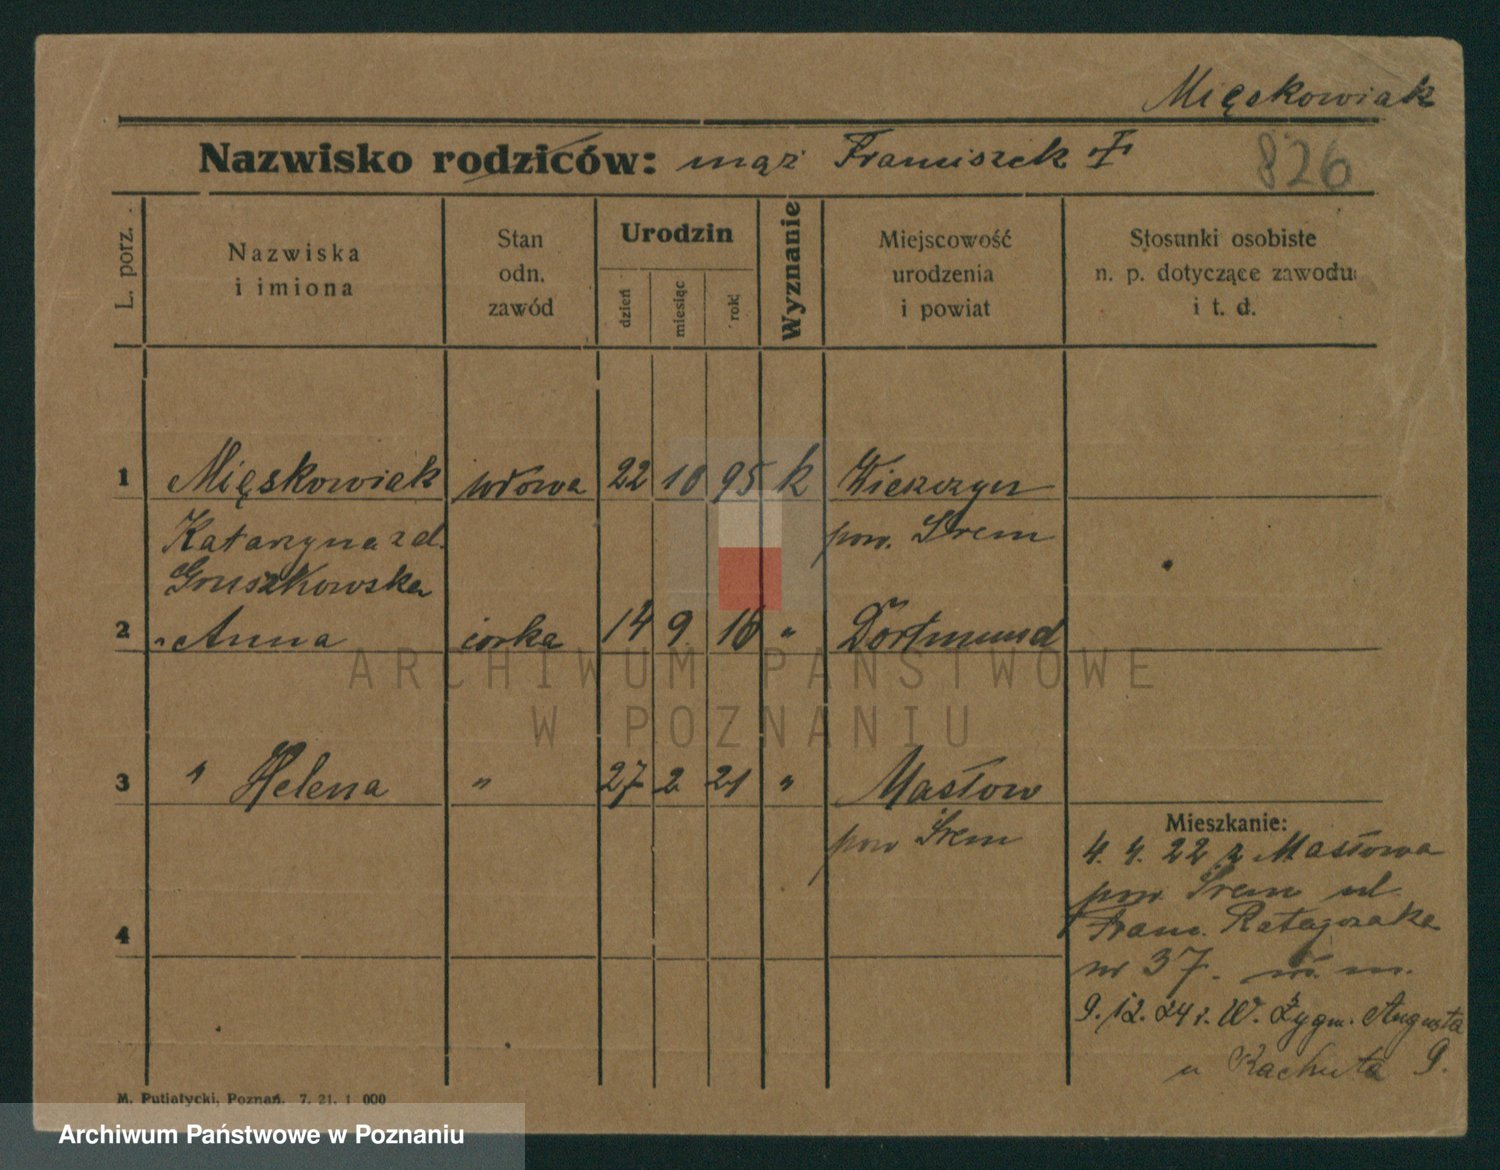 Mięskowiak
Nazwisko rodziców: mąż Franciszek
826
L. porz.
Nazwiska
i imiona
Stan
odn.
zawód
Urodzin
dzień
miesiąc
rok
Wyznanie
Miejscowość
urodzenia
i powiat
Stosunki osobiste
n. p. dotyczące zawodu
i t. d.
1 Mięskowiak wdowa 22 10 95 k
Katarzyna z d. pow. Śrem
Gruszkowska
2 " Anna córka 14 9 16 " Dortmund
3 " Helena " 27 2 21 " Masłow
pow Śrem
4
Mieszkanie:
4. 4. 22 z Masłowa
pow. Śrem ul.
Franc. Ratajczaka
nr 37.
9. 12. 24 r. W. Zygm. Augusta
u Kachuta 9.
M. Putiatycki, Poznań. 7. 21. 1 000
ARCHIWUM PAŃSTWOWE
W POZNANIU
Archiwum Państwowe w Poznaniu